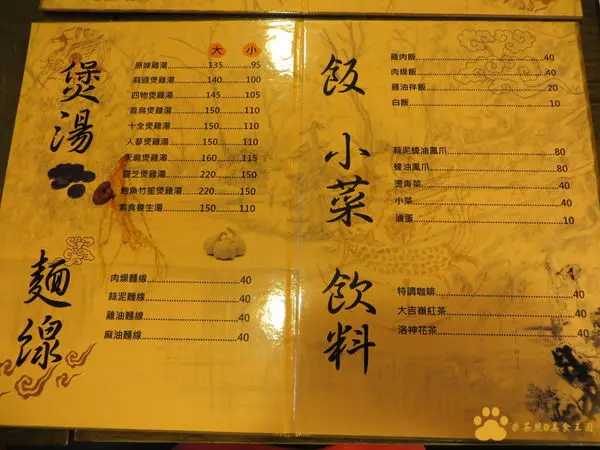 煲湯
大 小
原味雞湯 135 95
蒜頭煲雞湯 140 100
四物煲雞湯 145 105
首烏煲雞湯 150 110
十全煲雞湯 150 110
人蔘煲雞湯 150 110
天麻煲雞湯 160 115
靈芝煲雞湯 220 150
鮑魚竹笙煲雞湯 220 150
素食養生湯 150 110
麵線
肉燥麵線 40
蒜泥麵線 40
雞油麵線 40
麻油麵線 40
飯
雞肉飯 40
肉燥飯 40
雞油拌飯 20
白飯 10
小菜
蒜泥蠔油鳳爪 80
蠔油鳳爪 80
燙青菜 40
小菜 40
滷蛋 10
飲料
特調咖啡 40
大吉嶺紅茶 40
洛神花茶 40